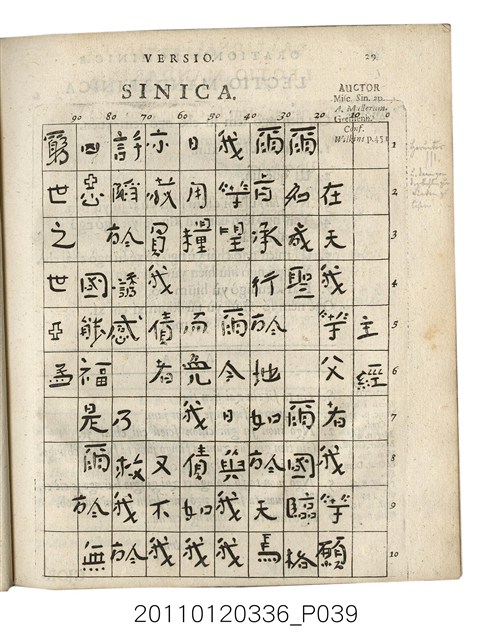 VERSIO.
29
SINICA.
AUCTOR
Misc. Sin. ap.
A. Mullerum.
Greiffenh.
Conf.
Wilkins p.451
90 80 70 60 50 40 30 20 10 0
1
2
3
4
5
6
7
8
9
10
主經
在天我等父者我等願
爾名成聖爾國臨格
爾旨承行於地如於天焉
我等望爾今日與我我
日用糧而免我債如我
亦赦負我債者又不我
許陷於誘感乃救我於
凶惡國能福是爾於無
窮世之世亞孟
20110120336_P039